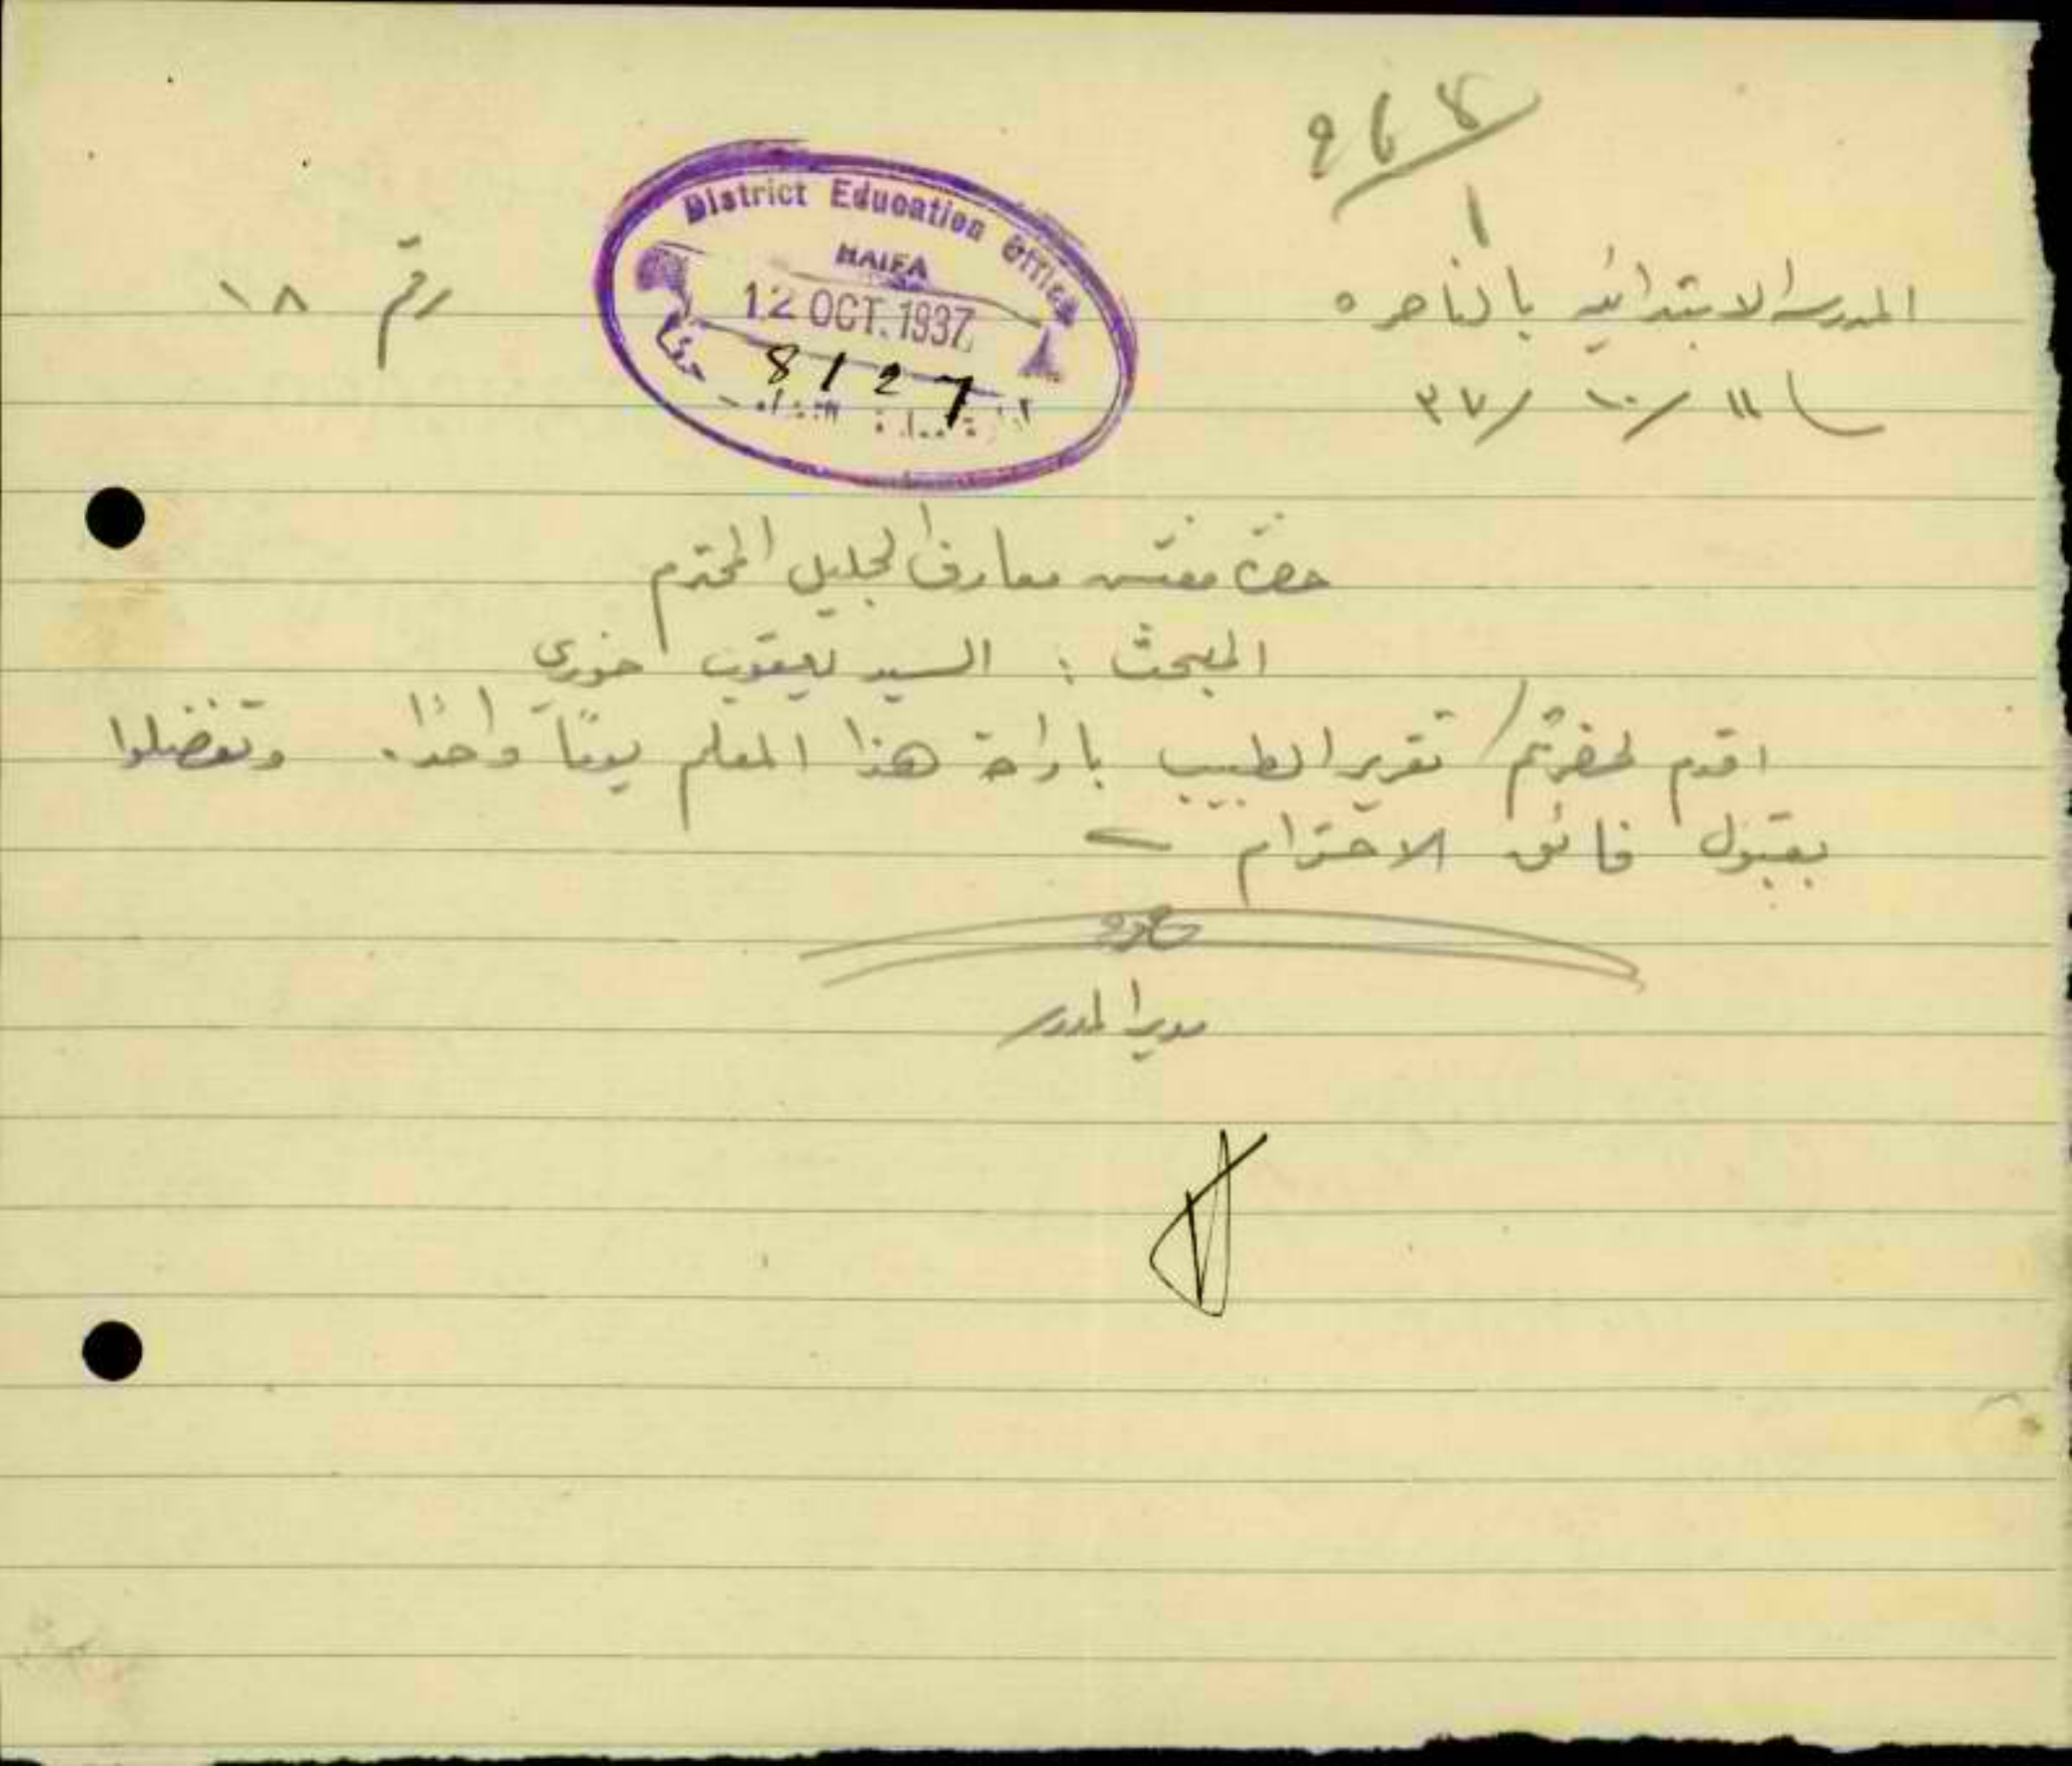 المدرسة الابتدائيه بالناصره
رقم ١٨
١١/١٠/٣٧
District Education Office
HAIFA
12 OCT. 1937
8127
حضرة مفتش معارف الجليل المحترم
المبحث : السيد يعقوب خوري
اقدم لحضرتكم تقرير الطبيب باراحة هذا المعلم يومًا واحدًا. وتفضلوا
بقبول فائق الاحترام
مدير المدرسة